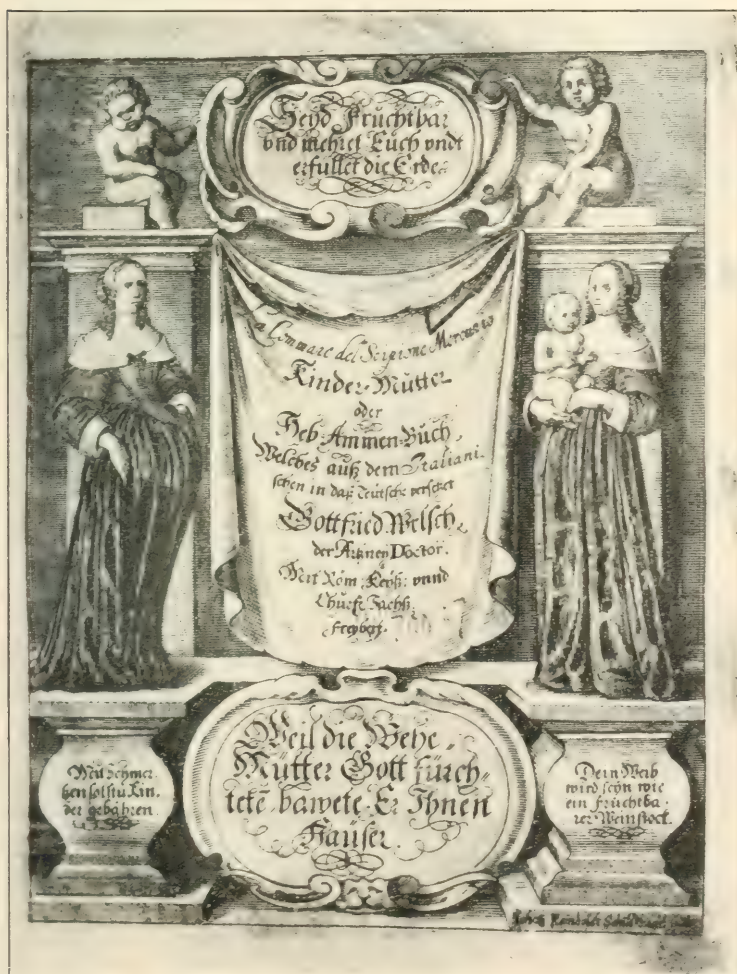 Seyd Fruchtbar
vnd mehret Euch vndt
erfullet die Erde
La Commare del Scipione Mercurio
Kinder-Mutter
oder
Heb-Ammen-Buch,
Welches auß dem Italiani-
schen in daß Teutsche versetzet
Gottfried Welsch,
der Artzney Doctor.
Mit Röm: Keyß: vnnd
Churf: Sachß:
freyheit.
Weil die Wehe-
Mütter Gott fürch-
tetē bawete Er Ihnen
Haüser.
Mit schmer-
tzen solstu Kin-
der gebähren.
Dein Weib
wird seyn wie
ein fruchtba-
rer Weinstock.